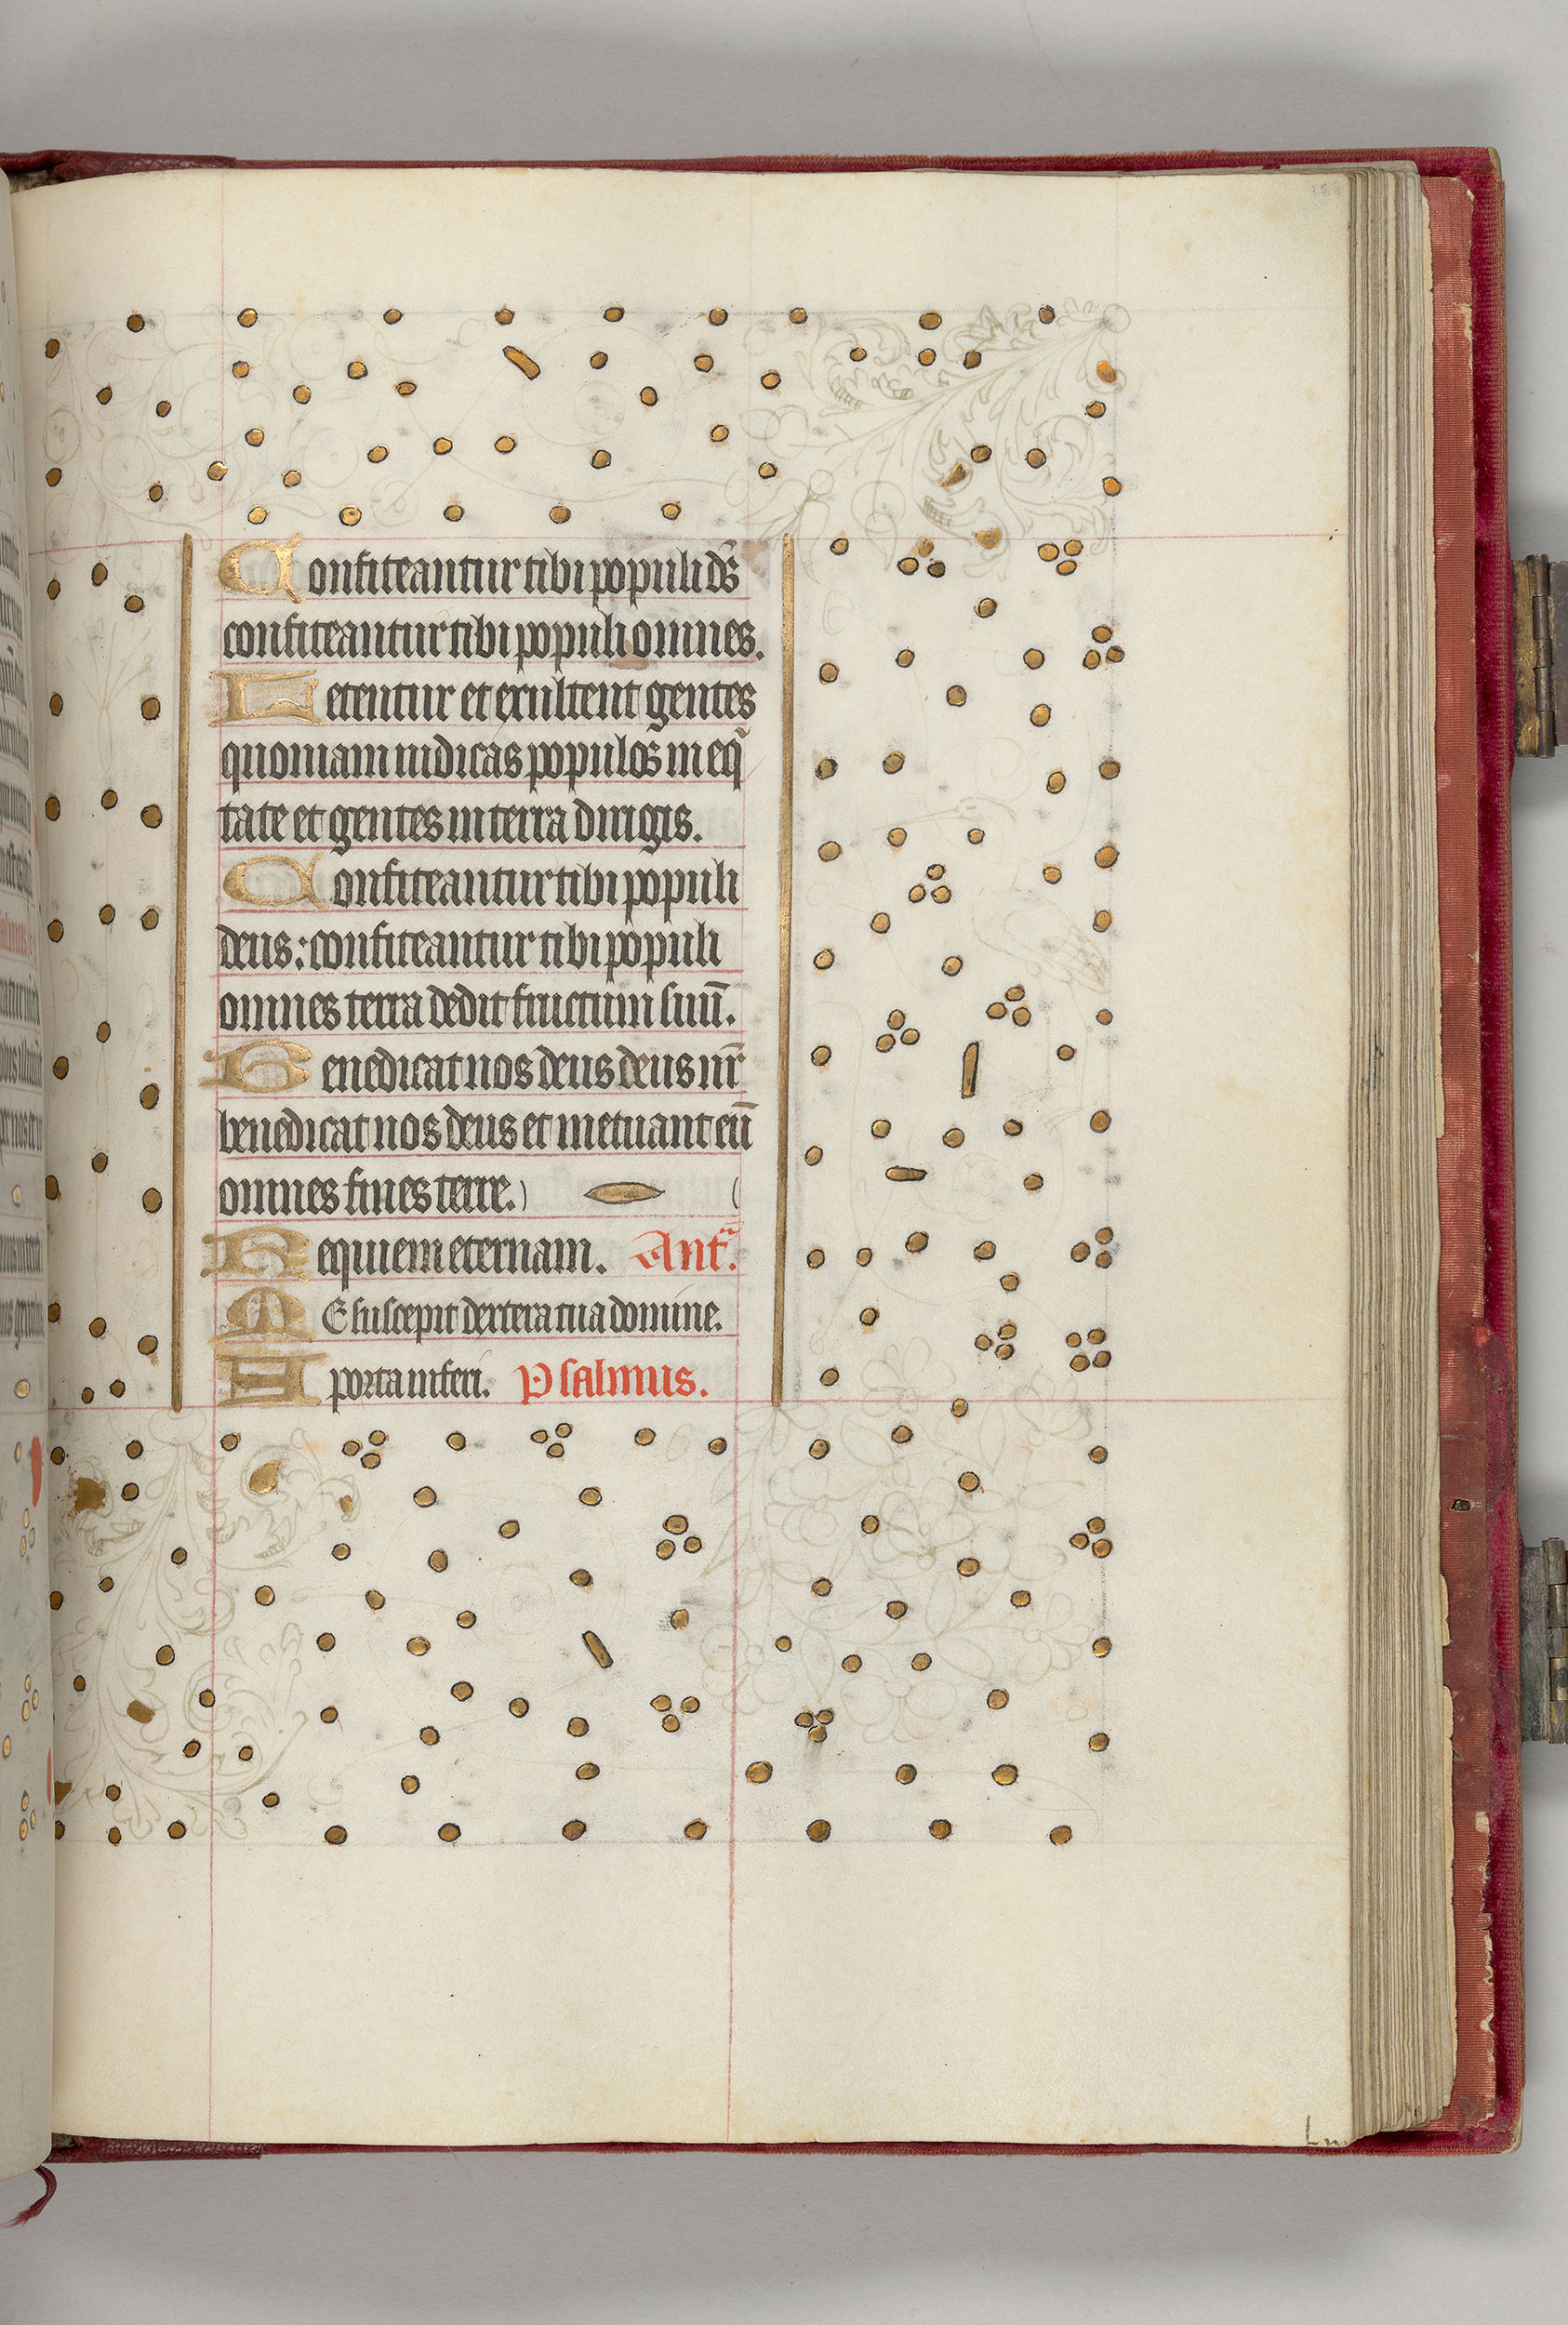 Confiteantur tibi populi ds̄
confiteantur tibi populi omnes.
Letentur et exultent gentes
quoniam iudicas populos in eq̄
tate et gentes in terra dirigis.
Confiteantur tibi populi
deus: confiteantur tibi populi
omnes terra dedit fructum suū.
Benedicat nos deus deus nr̄
benedicat nos deus et metuant eū
omnes fines terre.
Requiem eternam. Antᵃ.
ME suscepit dextera tua domine.
A porta inferi. Psalmus.